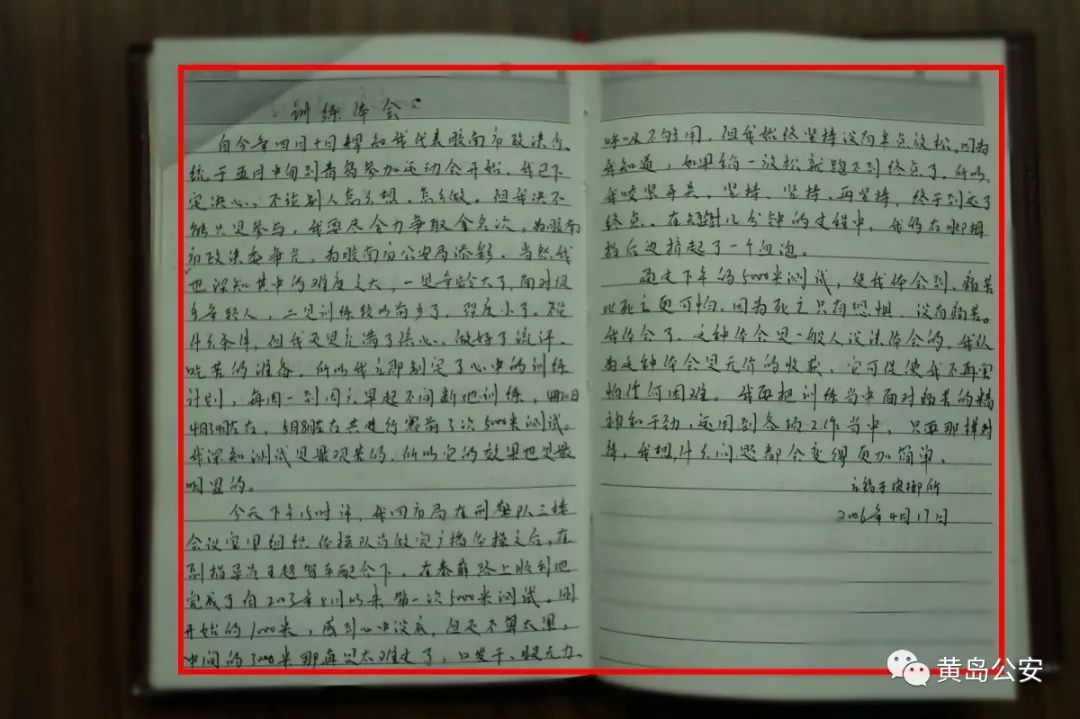 训练体会:
自今年四月十日得知我代表胶南市政法系
统于五月中旬到青岛参加运动会开始,我已下
定决心,不论别人怎么想、怎么做。但我决不
能只是参与,我要尽全力争取拿名次,为胶南
市政法委争光,为胶南市公安局添彩。当然我
也深知其中的难度之大,一是年龄大了,面对很
多年轻人,二是训练较以前少了,强度小了。不论
什么条件,但我还是充满了信心,做好了流汗、
吃苦的准备。所以我立即制定了心中的训练
计划,每周一到周六早起不间断地训练,
4月 左右,5月8日左右共进行赛前了次5000米测试。
我深知测试是最艰苦的,所以它的效果也是最
明显的。
今天下午15时许,我四市局在刑警队三楼
会议室里组织体操队员做完广播体操之后,在
副指导员王超驾车配合下,在泰薛路上顺利地
完成了自2003年8月以来第一次5000米测试。刚
开始的1000米,感到心中没底,但还不算太累,
中间的3000米那真是太难过了,口发干、腿无力、
呼吸不够用,但我始终坚持没有半点放松,因为
我知道,如果稍一放松就跑不到终点了。所以,
我咬紧牙关,坚持、坚持、再坚持,终于到达了
终点。在短短几分钟的过程中,我的右脚拇
指后边挤起了一个血泡。
通过下午的5000米测试,使我体会到,痛苦
比死亡更可怕。因为死亡只有恐惧,没有痛苦。
我体会了,这种体会是一般人没法体会的,我认
为这种体会是无价的收获,它可促使我不再害
怕任何困难。我要把训练当中面对痛苦的精
神和干劲,运用到各项工作当中,只要那样对
待,我想,什么问题都会变得更加简单。
于 所
2006年4月17日
黄岛公安